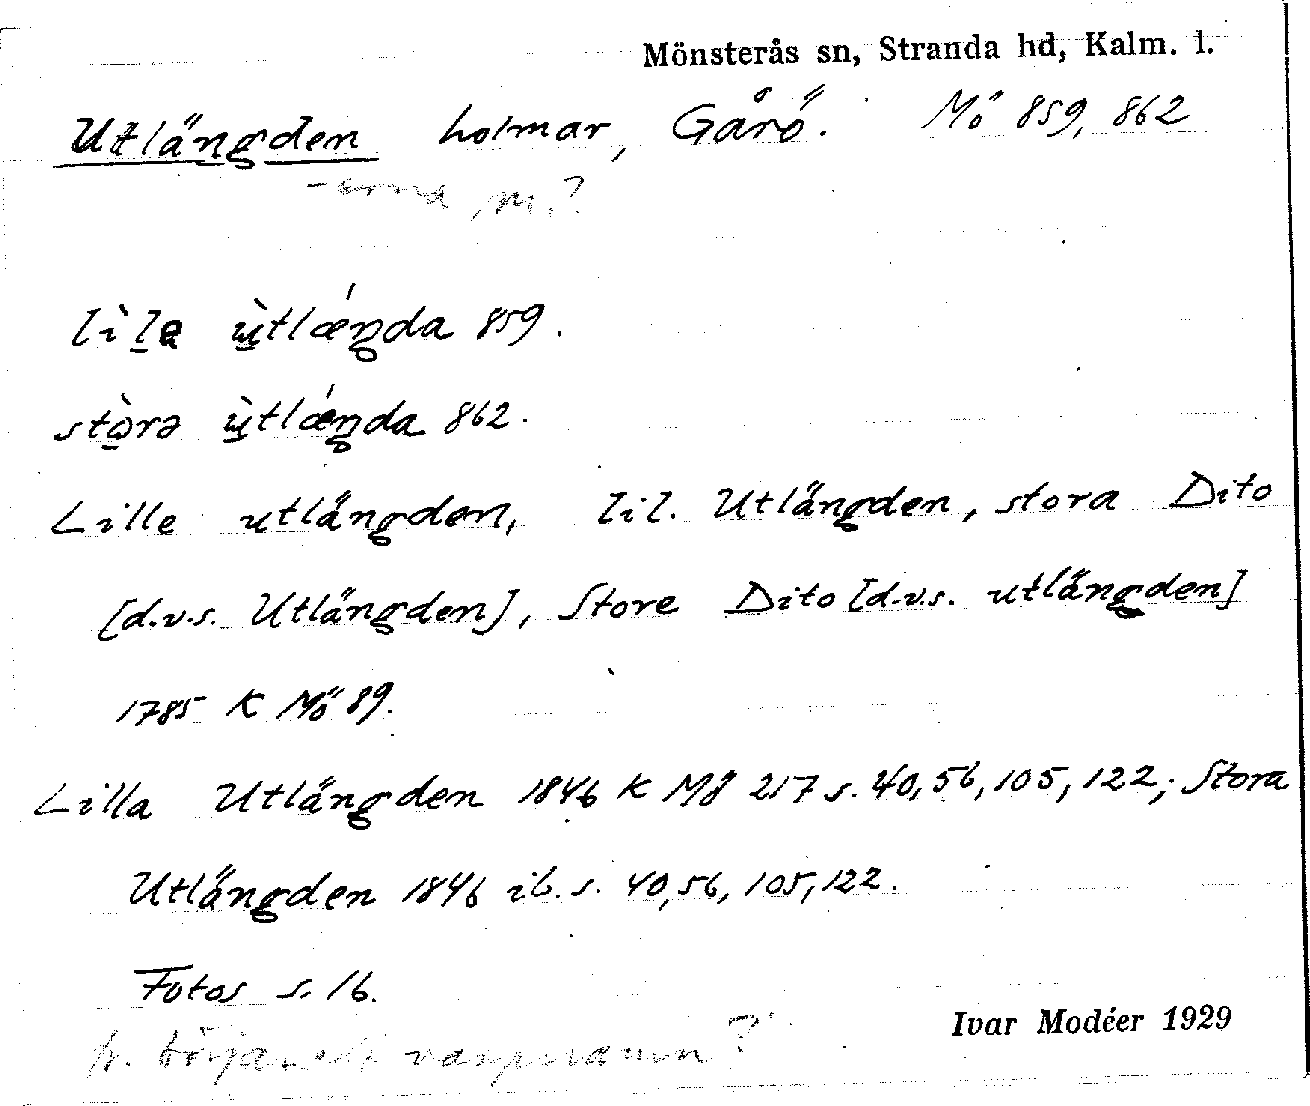 Mönsterås sn, Stranda hd, Kalm. l.
Utlängden holmar, Gårö. Mö 859, 862
-arna, m.?
lìla ùtlǽŋda 859.
stòrə ùtlǽŋda 862.
Lille utlängden, lil. Utlängden, stora Dito
[d.v.s. Utlängden], Store Dito [d.v.s. utlängden]
1785 K Mö 89.
Lilla Utlängden 1846 K Mö 217 s. 40, 56, 105, 122; Stora
Utlängden 1846 ib. s. 40, 56, 105, 122.
Fotos s. 16.
Ivar Modéer 1929
fr. början ett varpnamn?